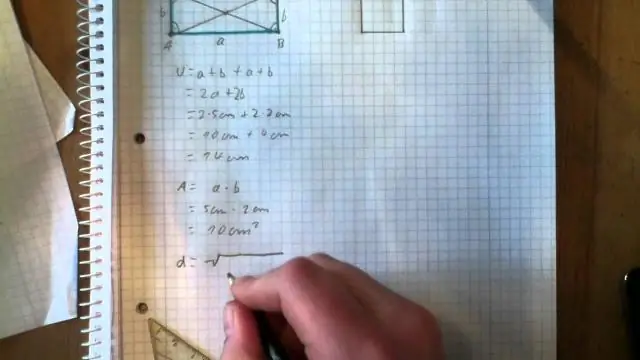 b b
A a B
U = a + b + a + b
= 2a + 2b
= 2·5cm + 2·2cm
= 10cm + 4cm
= 14cm
A = a · b
= 5cm · 2cm
= 10cm²
d = √